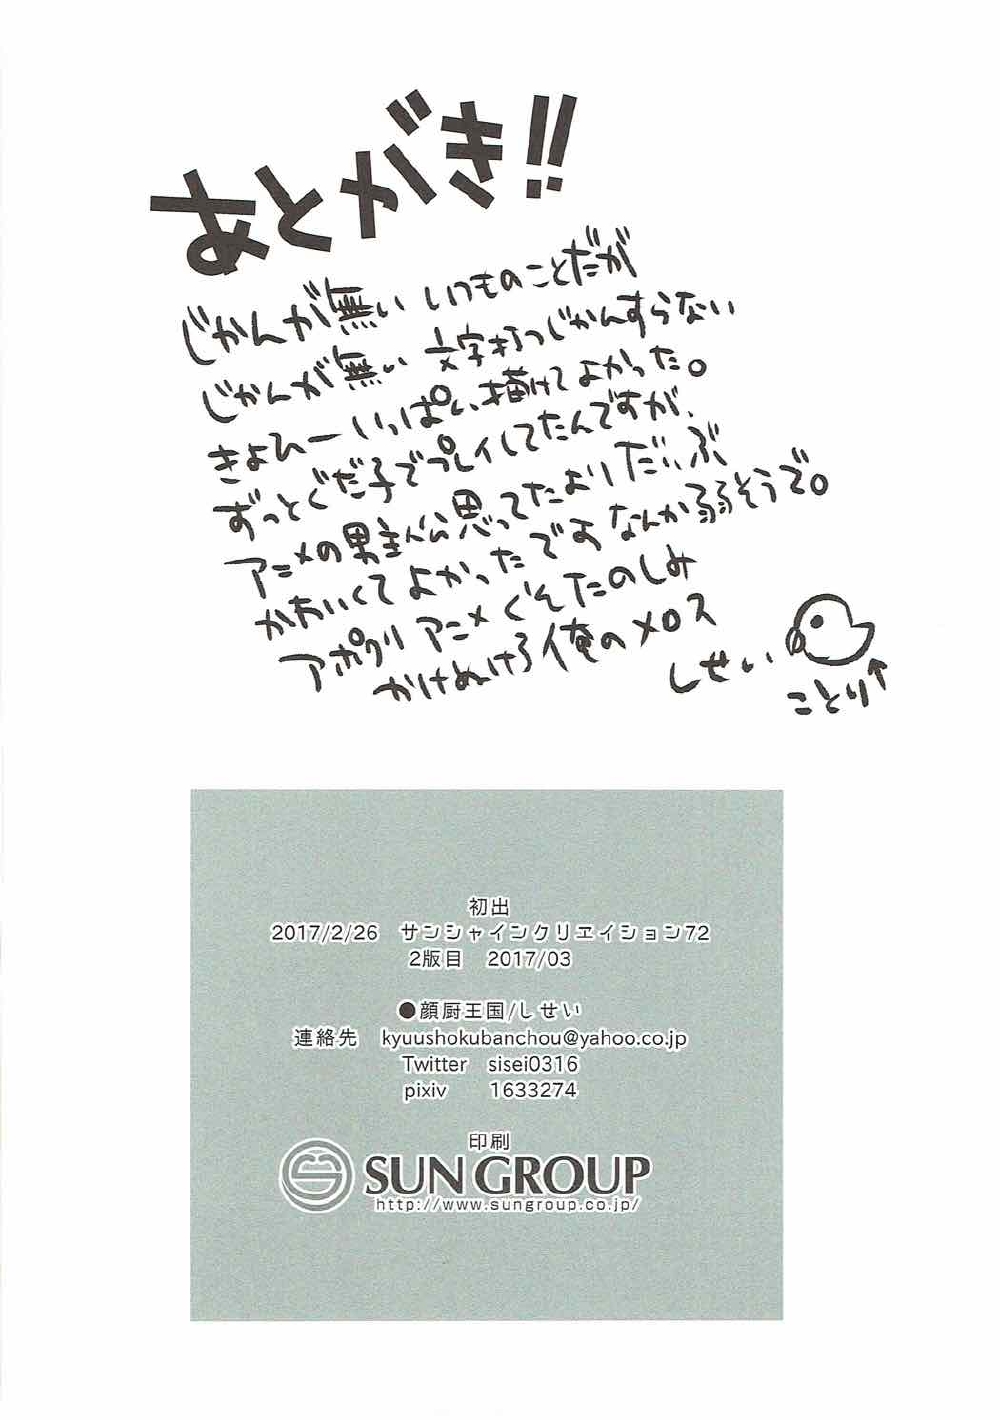 あとがき!!
じかんが無い いつものことだが
じかんが無い 文字打つじかんすらない
きよひー いっぱい描けてよかった。
ずっとぐだ子でプレイしてたんですが、
アニメの男主人公思ってたよりだいぶ
かわいくてよかったです なんか弱そうで。
アポクリ アニメ くそたのしみ
かけぬけろ俺のメロス
しせい
ことり↑
初出
2017/2/26 サンシャインクリエイション72
2版目 2017/03
●顔厨王国/しせい
連絡先 kyuushokubanchou@yahoo.co.jp
Twitter sisei0316
pixiv 1633274
印刷
SUN GROUP
http://www.sungroup.co.jp/